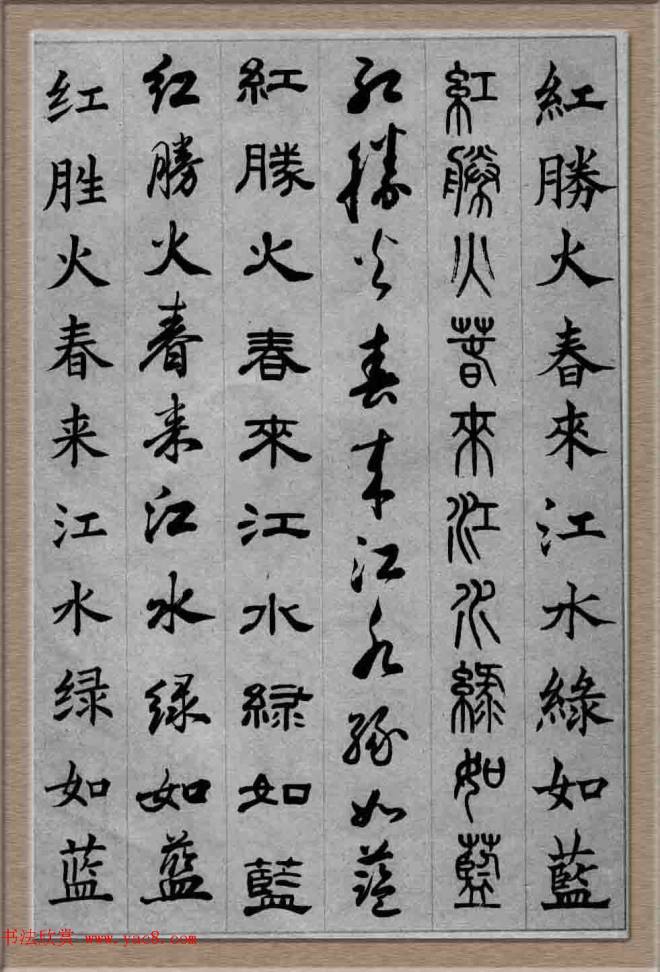 紅勝火春來江水綠如藍
紅勝火春來江水綠如藍
红勝火春来江水绿如蓝
紅勝火春來江水綠如藍
红勝火春来江水绿如蓝
红胜火春来江水绿如蓝
书法欣赏 www.yac8.com